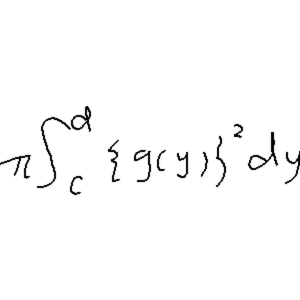 π∫_c^d {g(y)}² dy